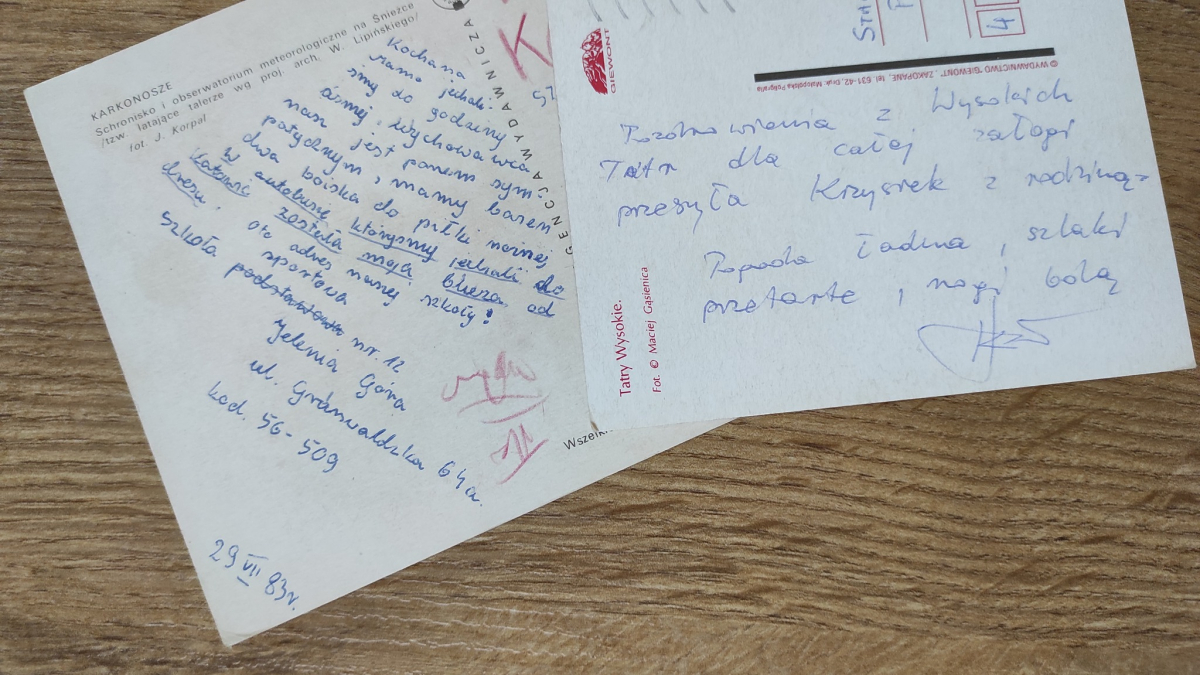 KARKONOSZE
Schronisko i obserwatorium meteorologiczne na Śnieżce
/tzw. latające talerze wg proj. arch. W. Lipińskiego/
fot. J. Korpal
Kochana
mamo jechali
śmy do godziny
ósmej, Wychowawca
nasz jest panem sym-
patycznym, mamy basen
dwa boiska do piłki nożnej
w autobusie którymy jechali do
Katowic została moja bluza od
dresu, oto adres naszej szkoły!
sportowa
Szkoła podstawowa nr. 12
Jelenia Góra
ul. Grunwaldzka 64a.
kod. 56-509
29 VII 83r.
WYDAWNICZA
Wszelki
GIEWONT
4
© WYDAWNICTWO "GIEWONT", ZAKOPANE, tel. 631-42, Druk. Małopolska Poligrafia
Pozdrowienia z Wysokich
Tatr dla całej załogi
przesyła Krzysiek z rodziną
Pogoda ładna, szlaki
przetarte, nogi bolą
Tatry Wysokie.
Fot. © Maciej Gąsienica